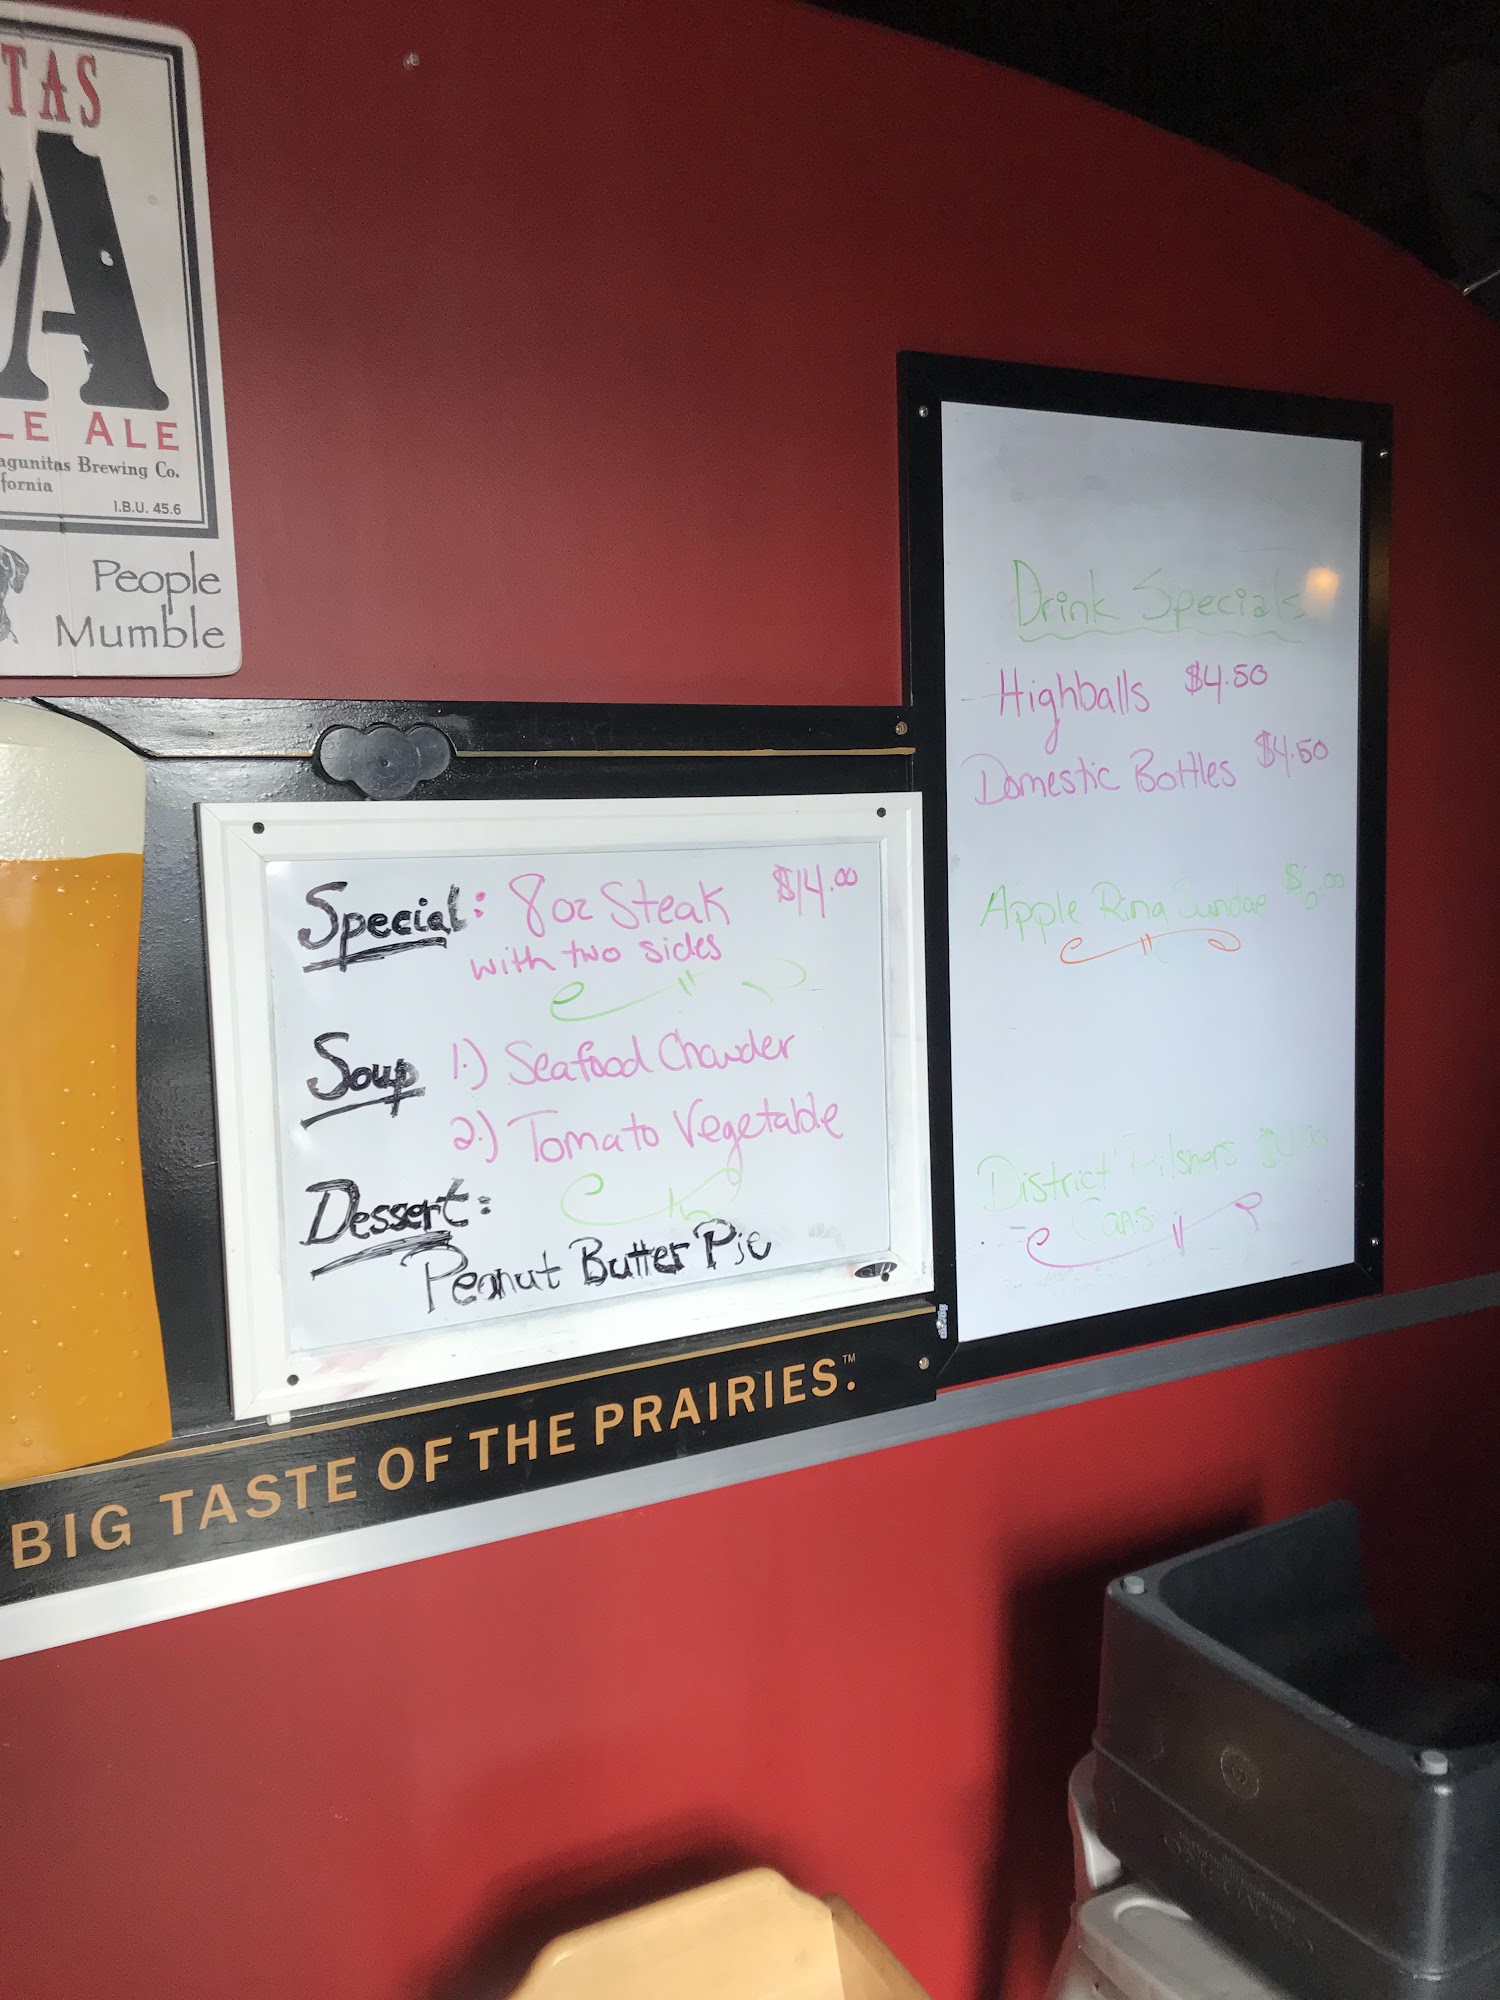 TAS
A
LE ALE
agunitas Brewing Co.
fornia
I.B.U. 45.6
People
Mumble
Special: 8oz Steak $14.00
with two sides
Soup 1.) Seafood Chowder
2.) Tomato Vegetable
Dessert:
Peanut Butter Pie
BIG TASTE OF THE PRAIRIES.™
Drink Specials
Highballs $4.50
Domestic Bottles $4.50
Apple Ring Sundae $6.00
District Pilsners
Cans